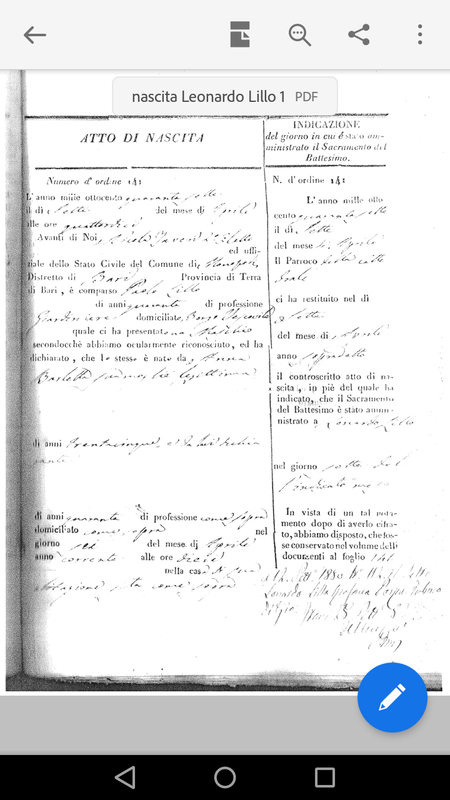 nascita Leonardo Lillo 1 PDF
ATTO DI NASCITA
Numero d'ordine 141
L'anno mille ottocento quaranta sette
il dì Sette del mese di Aprile
alle ore quattordici
Avanti di Noi
ed uffi-
riale dello Stato Civile del Comune di Monopoli
Distretto di Bari Provincia di Terra
di Bari, è comparso Paolo Lillo
di anni quaranta di professione
Giardiniere domiciliato
quale ci ha presentato
secondocchè abbiamo ocularmente riconosciuto, ed ha
dichiarato, che lo stesso è nato da Anna
Barletta sua moglie legittima
di anni trentacinque, e da lui dichia
rante
di anni quaranta di professione come sopra
domiciliato come sopra nel
giorno sei del mese di Aprile
anno corrente alle ore dieci
nella casa di sua
abitazione sita come sopra
INDICAZIONE
del giorno in cui è stato am-
ministrato il Sacramento del
Battesimo.
N. d'ordine 141
L'anno mille otto
cento quaranta sette
il dì Sette
del mese di Aprile
Il Parroco della catte
drale
ci ha restituito nel dì
Sette
del mese di Aprile
anno sopradetto
il controscritto atto di na-
scita, in piè del quale ha
indicato, che il Sacramento
del Battesimo è stato ammi-
nistrato a Leonardo Lillo
nel giorno sette del
l'indicato mese
In vista di un tal nota-
mento dopo di averlo cifra-
to, abbiamo disposto, che fos-
se conservato nel volume delli
documenti al foglio 141
1880
Leonardo Lillo